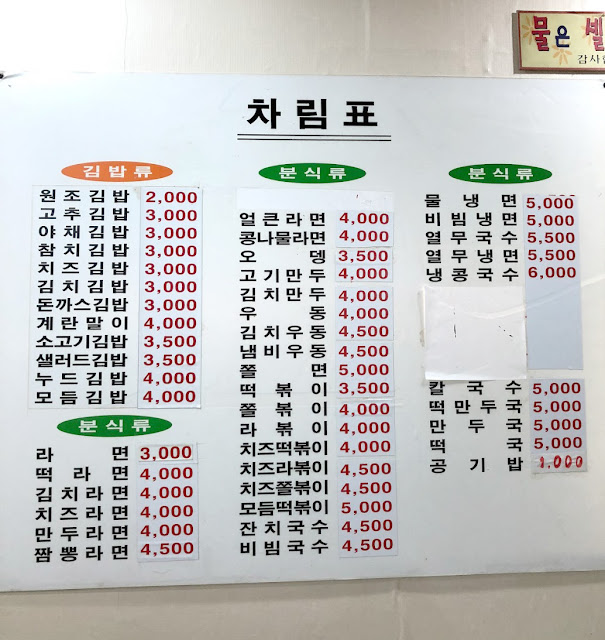 물은 셀
감사합
차림표
김밥류
원조김밥 2,000
고추김밥 3,000
야채김밥 3,000
참치김밥 3,000
치즈김밥 3,000
김치김밥 3,000
돈까스김밥 3,000
계란말이 4,000
소고기김밥 3,500
샐러드김밥 3,500
누드김밥 4,000
모듬김밥 4,000
분식류
라면 3,000
떡라면 4,000
김치라면 4,000
치즈라면 4,000
만두라면 4,000
짬뽕라면 4,500
분식류
얼큰라면 4,000
콩나물라면 4,000
오뎅 3,500
고기만두 4,000
김치만두 4,000
우동 4,000
김치우동 4,500
냄비우동 4,500
쫄면 5,000
떡볶이 3,500
쫄볶이 4,000
라볶이 4,000
치즈떡볶이 4,000
치즈라볶이 4,500
치즈쫄볶이 4,500
모듬떡볶이 5,000
잔치국수 4,500
비빔국수 4,500
분식류
물냉면 5,000
비빔냉면 5,000
열무국수 5,500
열무냉면 5,500
냉콩국수 6,000
칼국수 5,000
떡만두국 5,000
만두국 5,000
떡국 5,000
공기밥 1,000